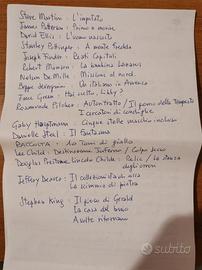 Steve Martini : L'imputato
James Patterson : Primo a morire
David Ellis : L'uomo
Stanley Pottinger : A mente fredda
Joseph Finder : Reati Capitali
Robert Munson : La bambina
Nelson De Mille : Missione al nord
Beppe Severgnini : Un italiano in America
Jane Green : Hai scelto, Libby?
Rosamunde Pilcher : Autoritratto / Il giorno della tempesta
I cercatori di conchiglie
Gaby Hauptmann : Cinque stelle macchina inclusa
Danielle Steel : Il fantasma
RACCOLTA : 10 Anni di giallo
Lee Child : Destinazione Inferno / Colpo secco
Douglas Preston e Lincoln Childs : Relic / La stanza
degli orrori
Jeffery Deaver : Il collezionista di ossa
La scimmia di pietra
Stephen King : Il gioco di Gerald
La casa del buio
A volte ritornano
subito